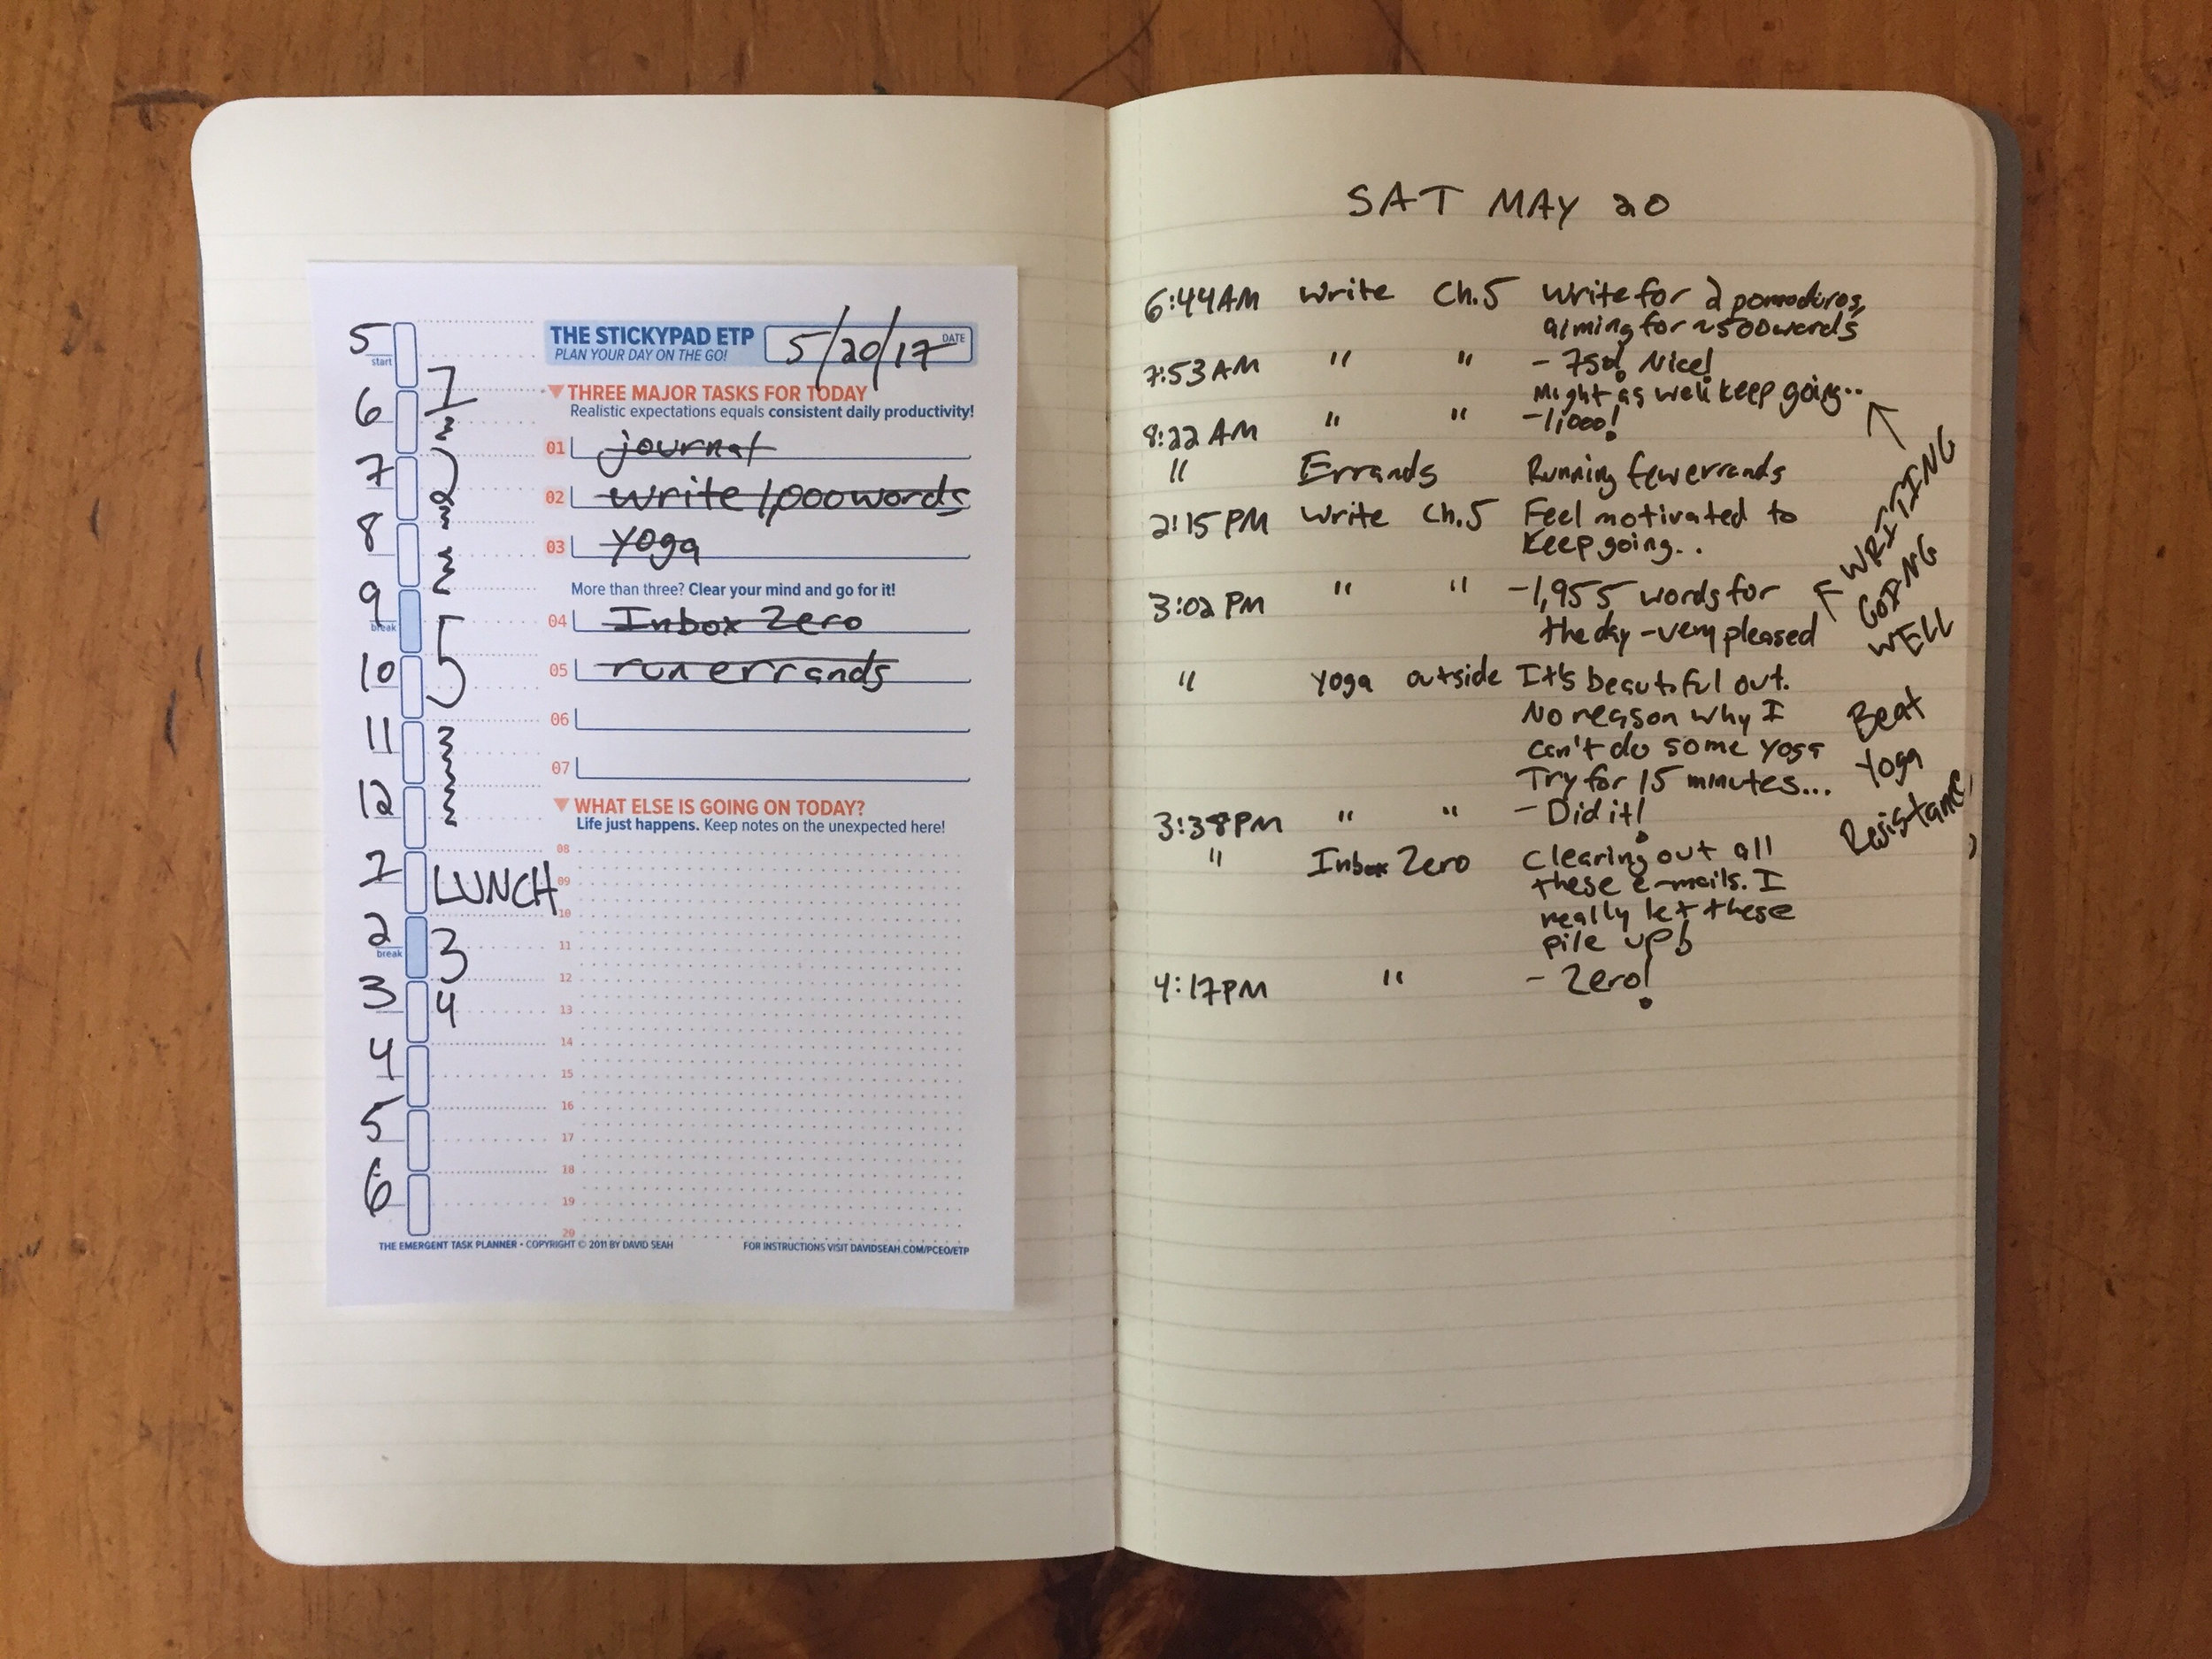 5
start
6
7
8
9
break
10
11
12
1
2
break
3
4
5
6
1
2
5
LUNCH
3
4
THE STICKYPAD ETP
PLAN YOUR DAY ON THE GO!
5/20/17
DATE
▼ THREE MAJOR TASKS FOR TODAY
Realistic expectations equals consistent daily productivity!
01 journal
02 write 1,000 words
03 yoga
More than three? Clear your mind and go for it!
04 Inbox Zero
05 run errands
06
07
▼ WHAT ELSE IS GOING ON TODAY?
Life just happens. Keep notes on the unexpected here!
08
09
10
11
12
13
14
15
16
17
18
19
20
THE EMERGENT TASK PLANNER • COPYRIGHT © 2011 BY DAVID SEAH
FOR INSTRUCTIONS VISIT DAVIDSEAH.COM/PCEO/ETP
SAT MAY 20
6:44AM Write Ch.5 Write for 2 pomodoros,
aiming for ~500 words
7:53AM " " - 750! Nice!
Might as well keep going..
8:22 AM " " - 1,000!
" Errands Running few errands
2:15PM Write Ch.5 Feel motivated to
keep going..
3:02 PM " " - 1,955 words for
the day - very pleased
" Yoga outside It's beautiful out.
No reason why I
can't do some yoga
Try for 15 minutes...
3:38PM " " - Did it!
" Inbox Zero Clearing out all
these e-mails. I
really let these
pile up!
4:17PM " - Zero!
WRITING
GOING
WELL
Beat
Yoga
Resistance